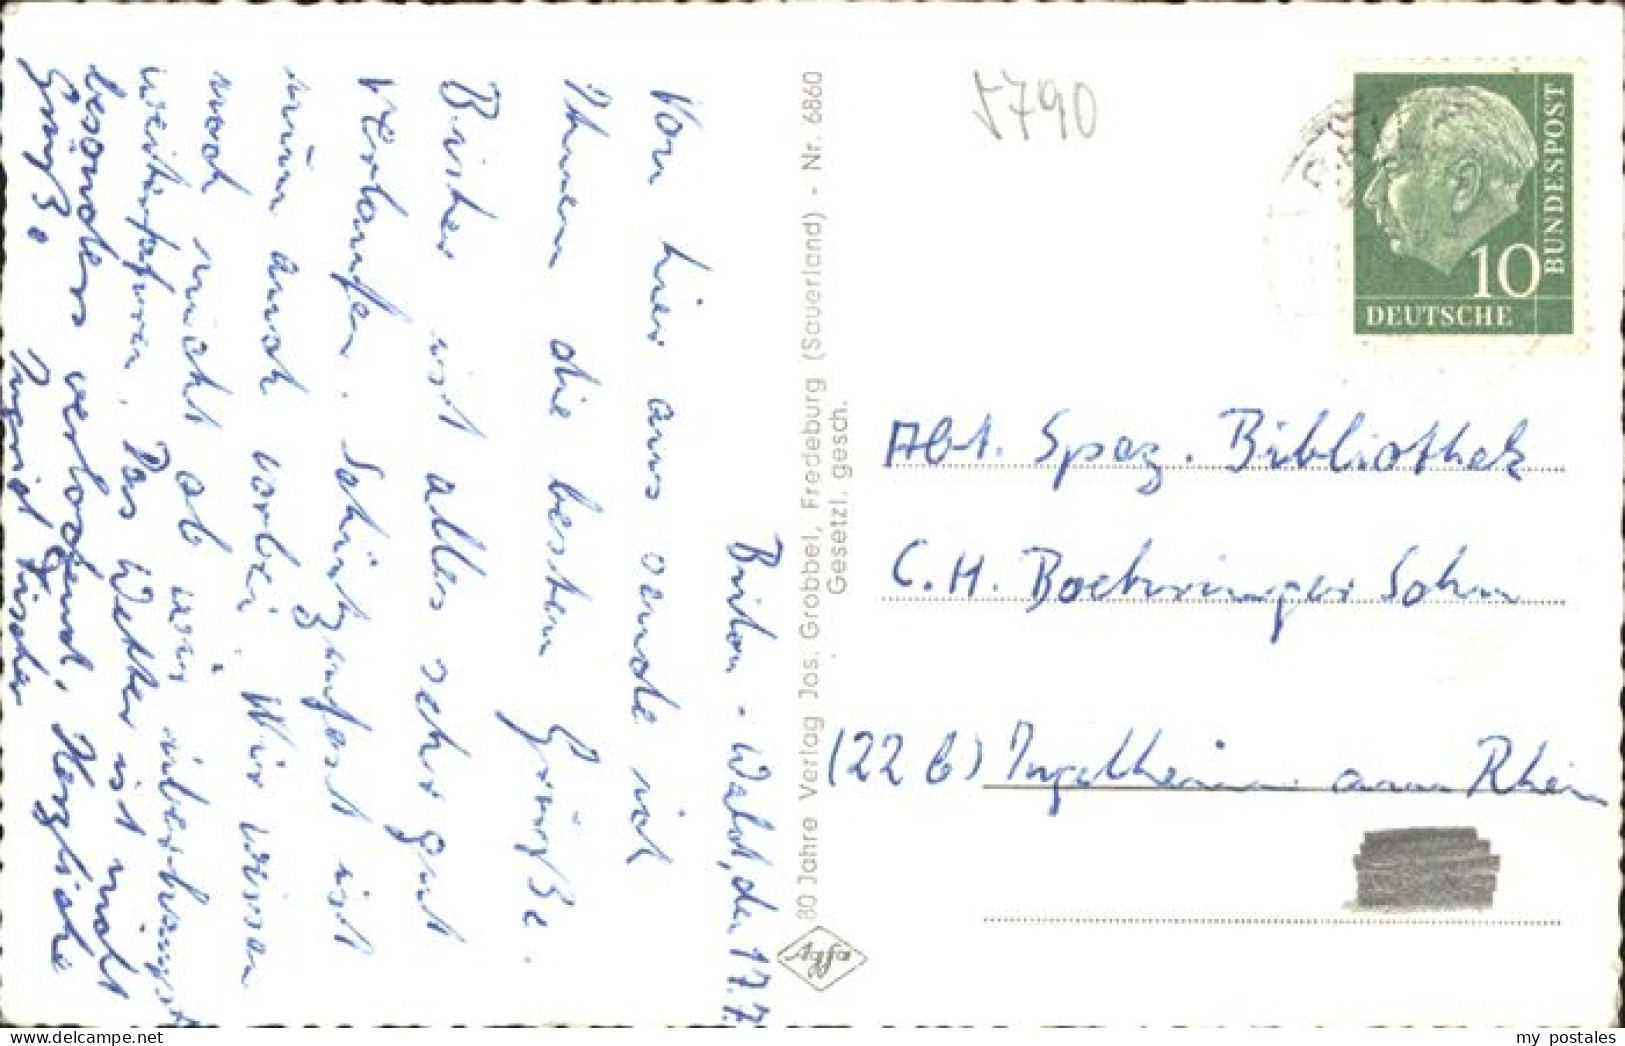 Brilon-Wald, den 17.7.
Von hier aus sende ich
Ihnen die besten Grüße.
Bisher ist alles sehr gut
verlaufen. Schützenfest ist
nun auch vorbei. Wir wissen
noch nicht ob wir überhaupt
weiterfahren. Das Wetter ist nicht
besonders verlockend. Herzliche
Grüße Ingrid Fischer
80 Jahre Verlag Jos. Grobbel, Fredeburg (Sauerland) - Nr. 6860
Gesetzl. gesch.
Agfa
5790
BUNDESPOST
10
DEUTSCHE
Abt. Spez. Bibliothek
C. H. Boehringer Sohn
(22 b) Ingelheim am Rhein
my postales